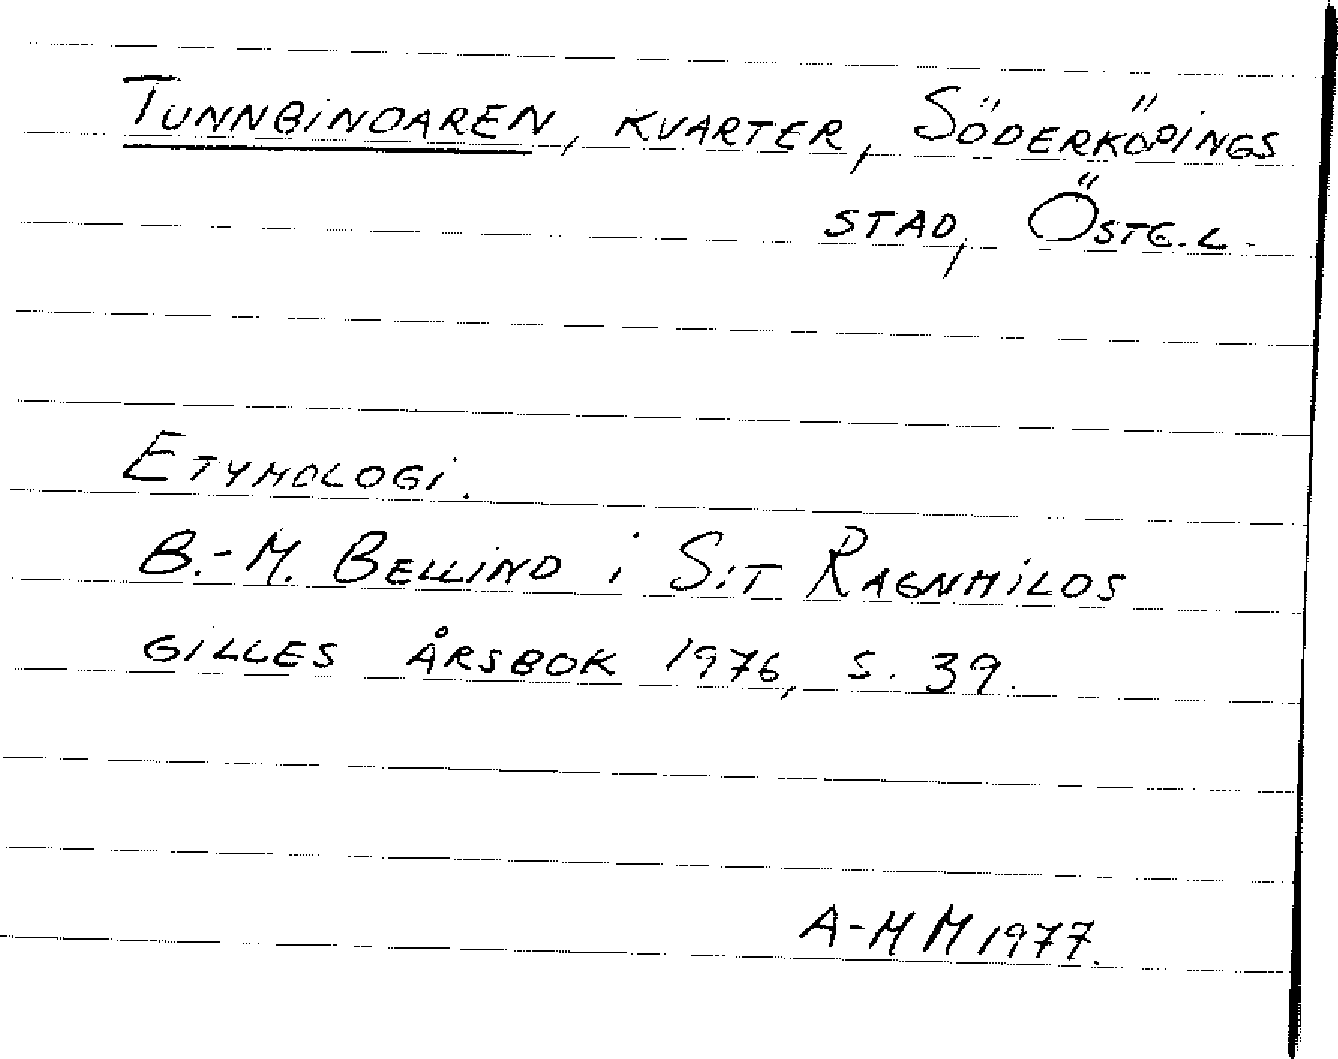 Tunnbindaren, kvarter, Söderköpings
stad, Östg.l.
Etymologi.
B.-M. Bellind i S:t Ragnhilds
gilles årsbok 1976, s. 39.
A-M M 1977.